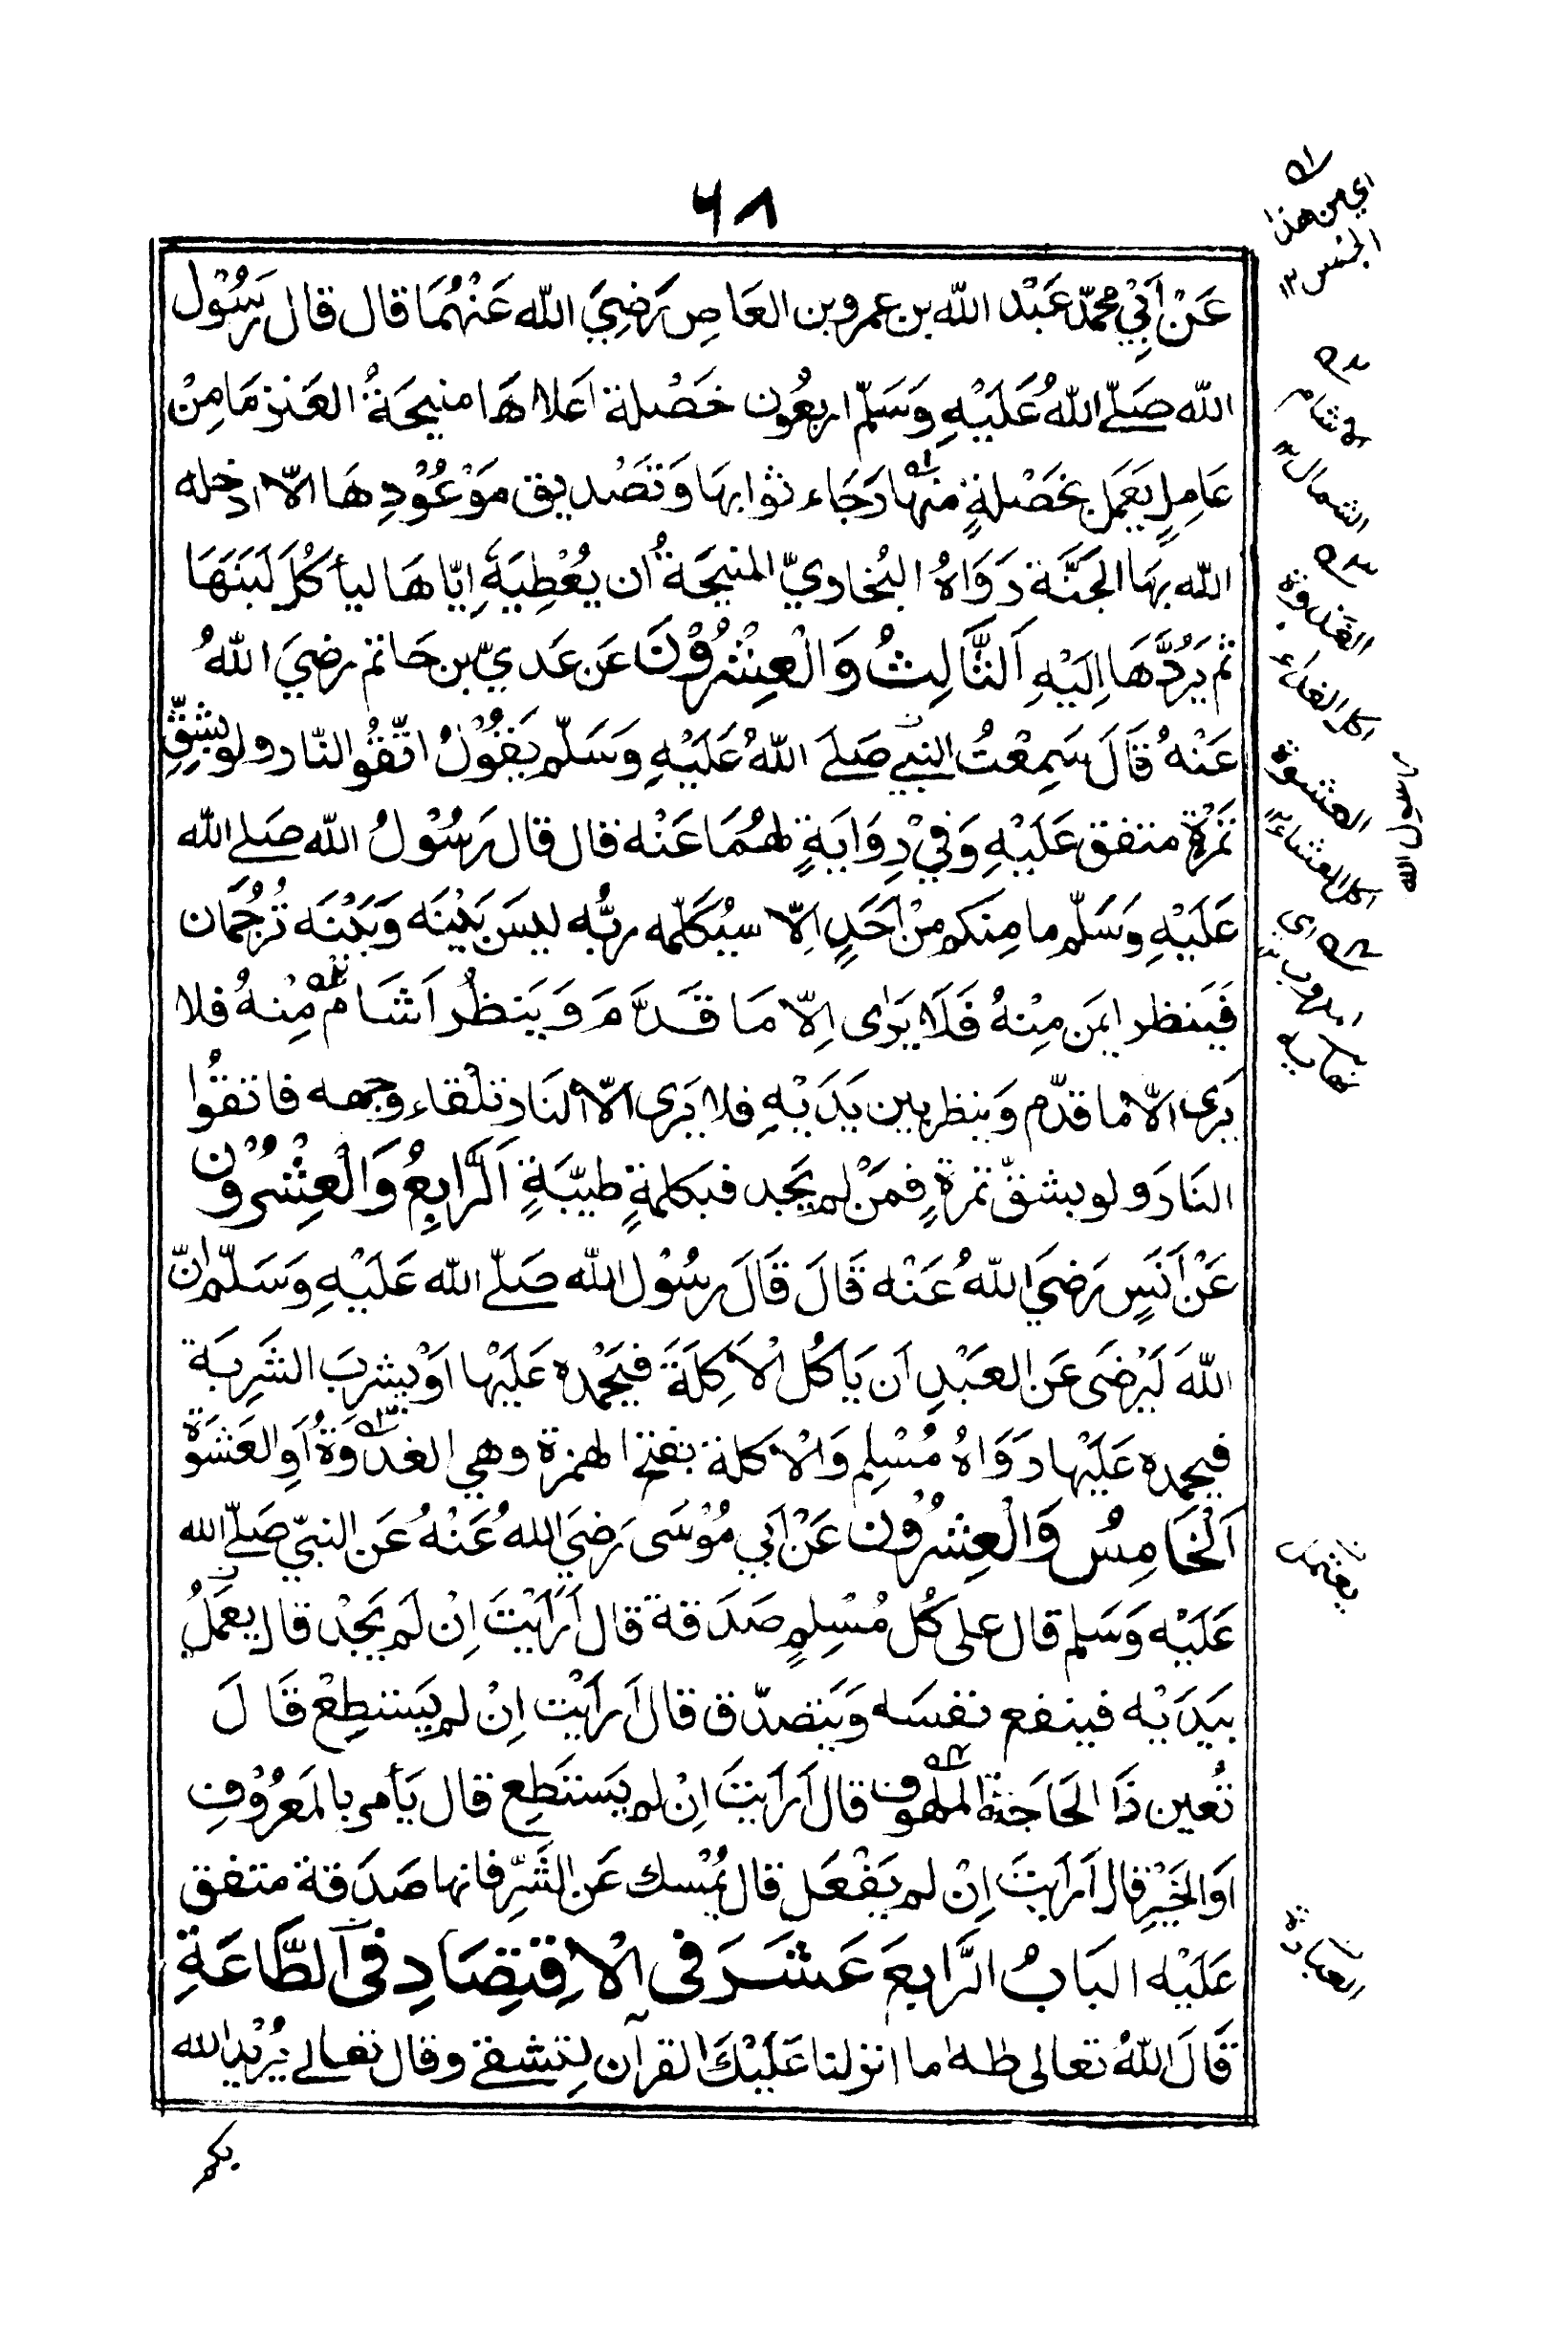 ٦٨
عَنْ أَبِيْ محمّد عَبْد الله بن عمرو بن العَاصِ رَضِيَ الله عَنْهُمَا قال قال رَسُوْل
الله صَلّى اللهُ عَلَيْهِ وَسَلّم اربعُون خَصْلة اَعلاهَا منيحَةُ العَنز مَا مِنْ
عَامِلٍ يَعمَل بخَصْلةٍ منها رَجَاء ثوابها وَتَصْديق مَوْعُوْدِهَا الّا ادخله
الله بهَا الجَنَّة رَوَاهُ البُخاريّ المنيحَةُ أن يُعْطِيَهَ إيّاهَا ليأكُل لَبَنَهَا
ثم يَرُدَّهَا اِلَيْهِ اَلثَّالِثُ وَالْعِشْرُوْنَ عَن عَديّ بن حَاتم رضيَ اللهُ
عَنْهُ قَالَ سَمِعْتُ النبي صَلَے اللهُ عَلَيْهِ وَسَلّم يَقُوْلُ اتّقُوا النّار ولو بشِقِّ
تمرةٍ متفق عَلَيْهِ وَفِيْ رِوَايَةٍ لهُمَا عَنْه قال قال رَسُوْلُ الله صَلے الله
عَلَيْهِ وَسَلّم ما مِنكم مِنْ اَحَدٍ اِلّا سيُكَلّمه ربُّه ليسَ بَيْنَه وَبَيْنَه تُرجُمَان
فَيَنظر ايمَن مِنْهُ فَلَا يَرٰى اِلّا مَا قَدَّمَ وَيَنظُر اَشَام مِنْهُ فلا
يَرى الّا ما قدّم وَينظر بين يَدَيْهِ فلا يَرى الّا النَار تلْقاء وجهه فاتقُوا
النَار وَلو بشقّ تمرةٍ فمَنْ لم يَجد فبكلمةٍ طيّبَةٍ اَلرَّابِعُ وَالْعِشْرُوْن
عَنْ أَنَسٍ رَضيَ اللهُ عَنْه قَالَ قَالَ رسُوْل الله صَلّے الله عَلَيْهِ وَسَلّم اِنّ
اللهَ لَيَرْضَى عَن العَبْدِ اَن يَاكُل الْاَكِلَةَ فيَحْمَده عَلَيْها اَوْ يشرب الشَرِبَة
فيحمده عَلَيْها رَوَاهُ مُسْلِم وَالْاكلة بفتح الهمزة وهي الغدْوَةُ أَوِ العَشَوَة
اَلْخَامِسُ وَالْعِشْرُوْن عَنْ اَبي مُوْسَى رَضيَ اللهُ عَنْهُ عَن النبيّ صَلّے الله
عَلَيْه وَسَلم قال على كُل مُسْلِمٍ صَدَقة قال اَرَاَيْتَ اِنْ لَم يَجدْ قال يعمَلُ
بيَدَيْه فينفع نفسَه وَيَتصدّق قال اَرَايْت اِنْ لم يَستطِعْ قَالَ
تُعين ذَا الحَاجَة الملهوف قال اَرَايتَ اِنْ لم يَستَطِع قال يَأمر بالمَعْرُوْفِ
اَوالخَيْر قال اَرَايتَ اِنْ لم يَفْعَل قال يُمْسك عَن الشَرّ فانها صَدَقة متفق
عَلَيْه البَابُ الرَّابعَ عَشَرَ فى الْاِقتِصَادِ فى الطَّاعَةِ
قَالَ اللهُ تعالى طه ما انزلنا عَلَيْكَ القرآن لِتشقے وقال تعالے يُرْيد الله
بكم
اي من هذا
الجنس ١٢
اى شام
الشمال ١٢
الغدوة
اكل الغداء
العشوة
اكل العشاء ١٢
رسول الله
اي
المكروب ١٢
نهايه
يعتمل
العبادة